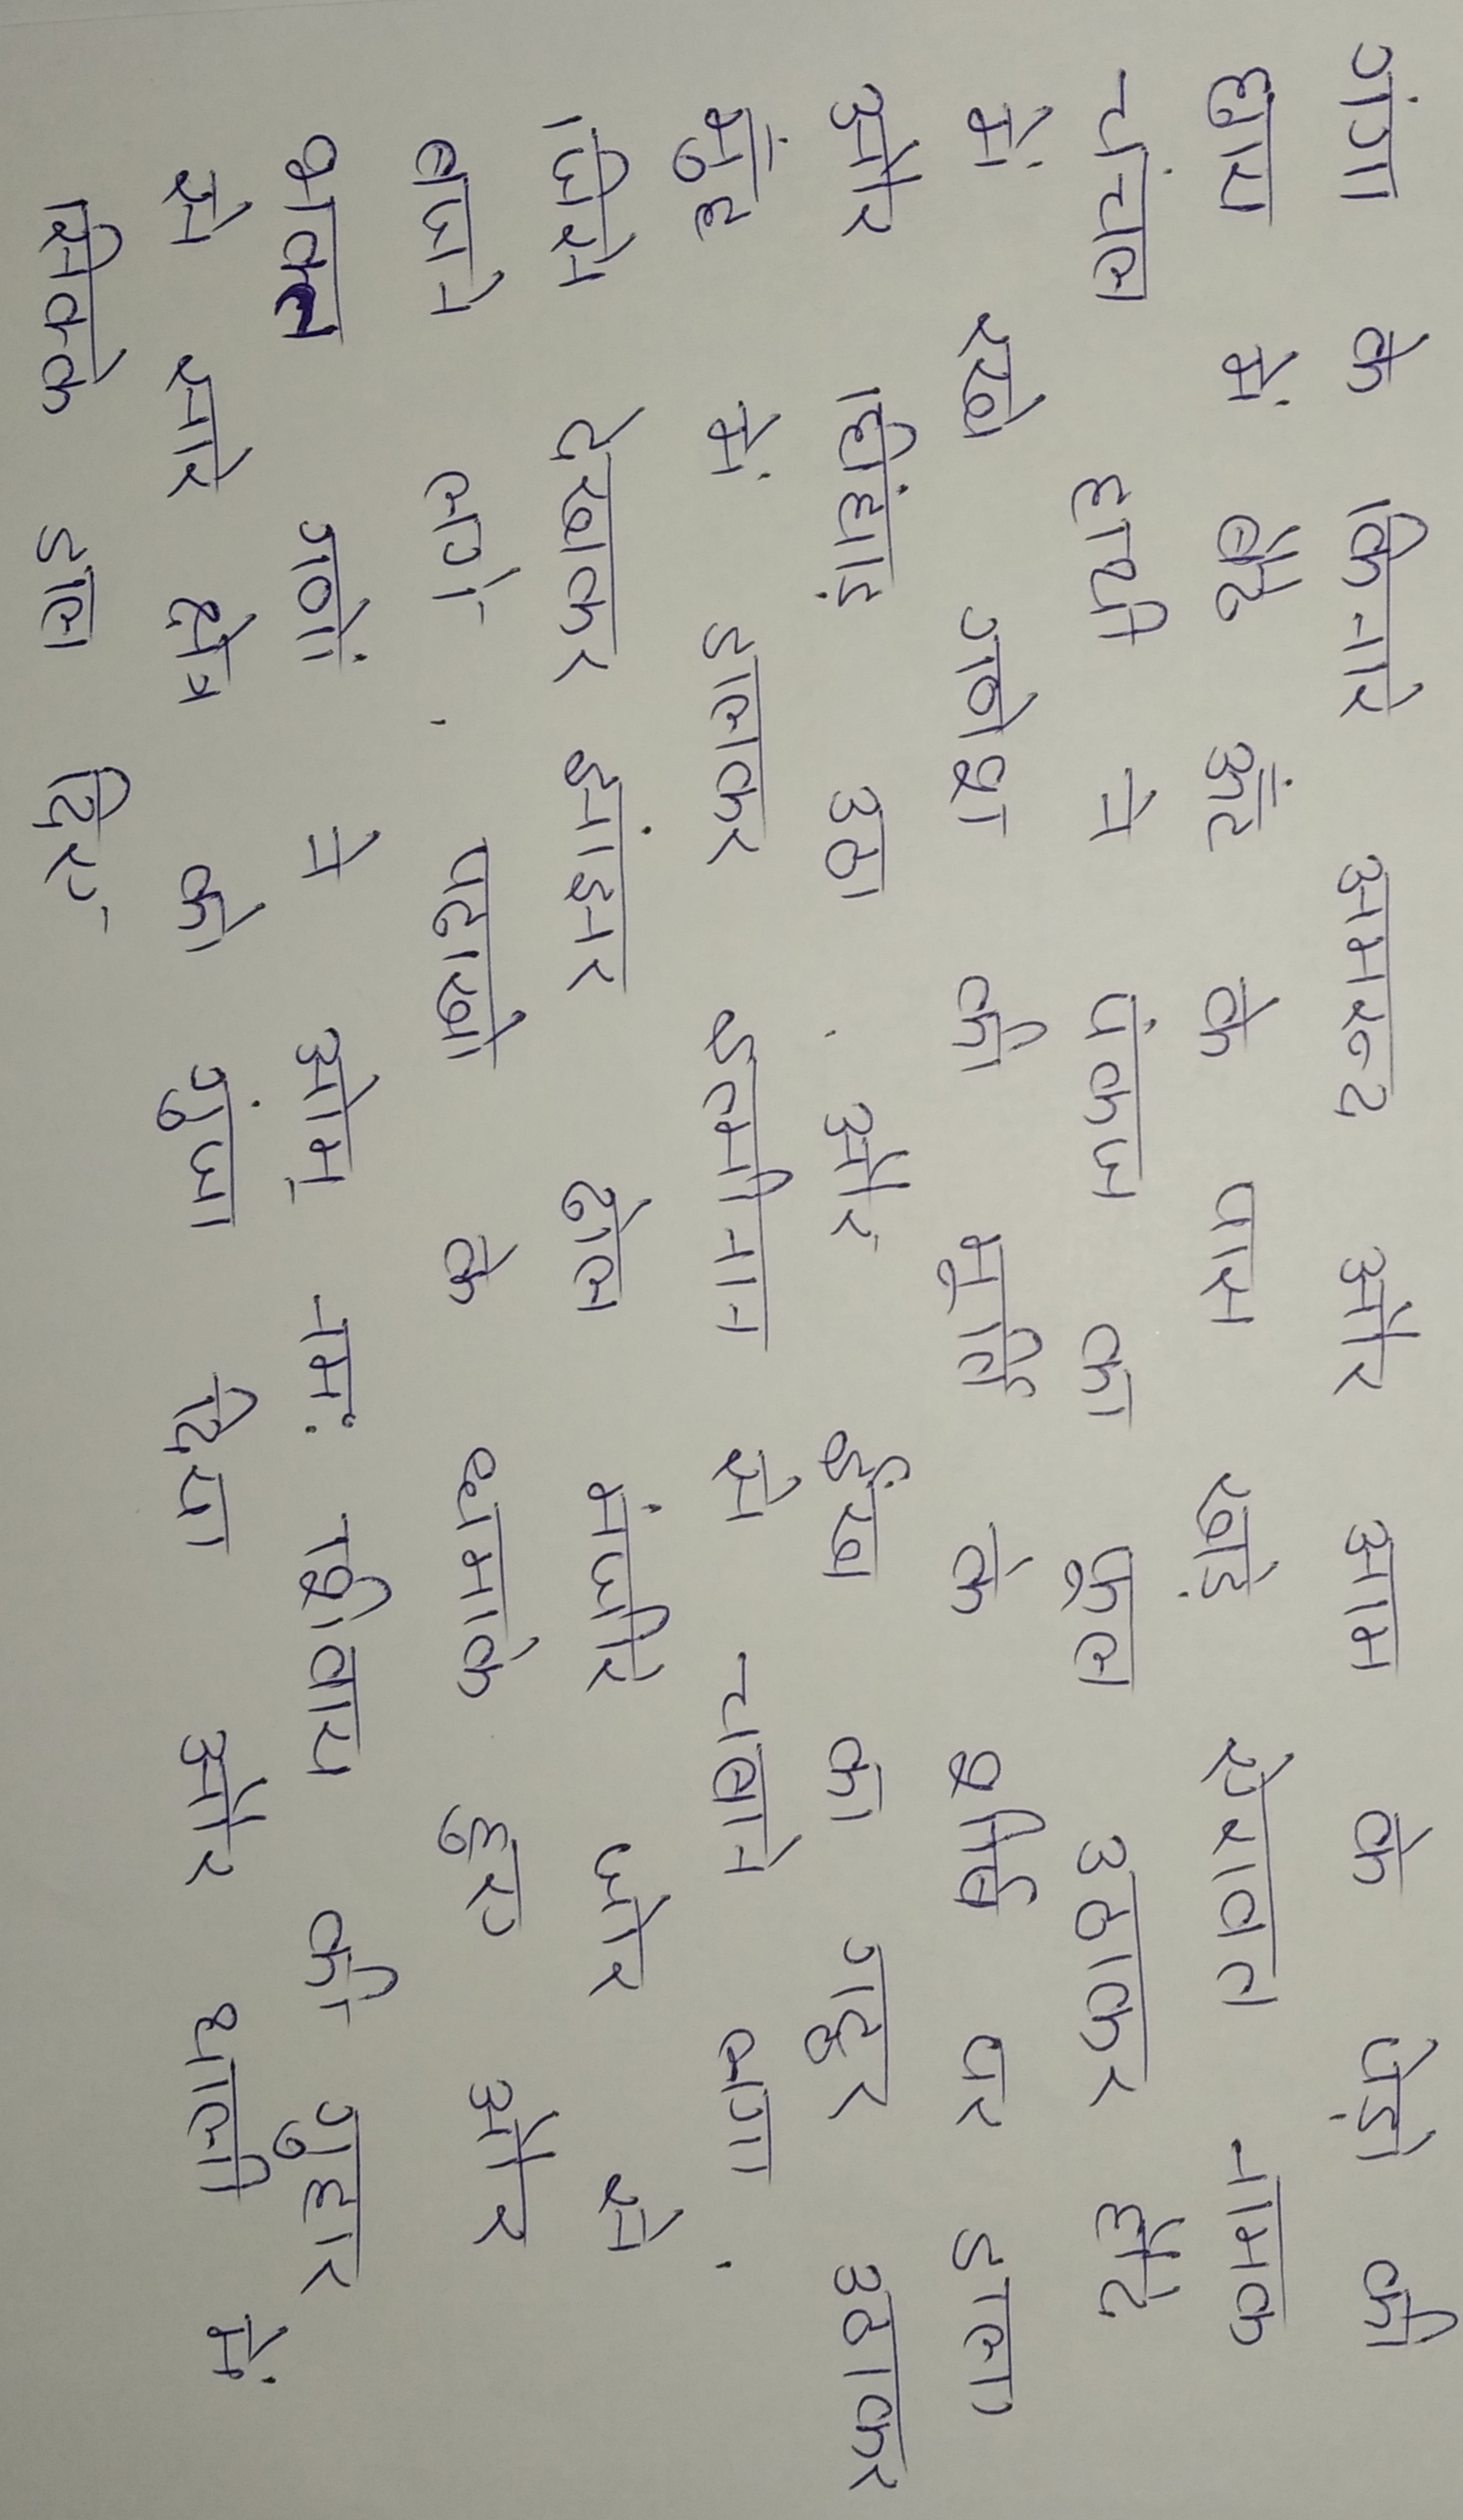 गंगा के किनारे अमरूद और आम के पेड़ो की
छाय में बैठे ऊँट के पास खड़े ऐरावत नामक
चंचल हाथी ने पंकज का फूल उठाकर हौदे
में रखे गणेश की मूर्ति के शीर्ष पर डाला
और घिंघाड़ उठा . और ईंख का गट्ठर उठाकर
मुँह में डालकर इत्मीनान से चबाने लगा .
जिसे देखकर झांझर ढोल मंजीरे जोर से
बजने लगे . पटाखो के धमाके हुए और
भक्त गणों ने ओम् नमः शिवाय की गुहार
से सारे क्षेत्र को गुंजा दिया और थाली में
सिक्के डाल दिए